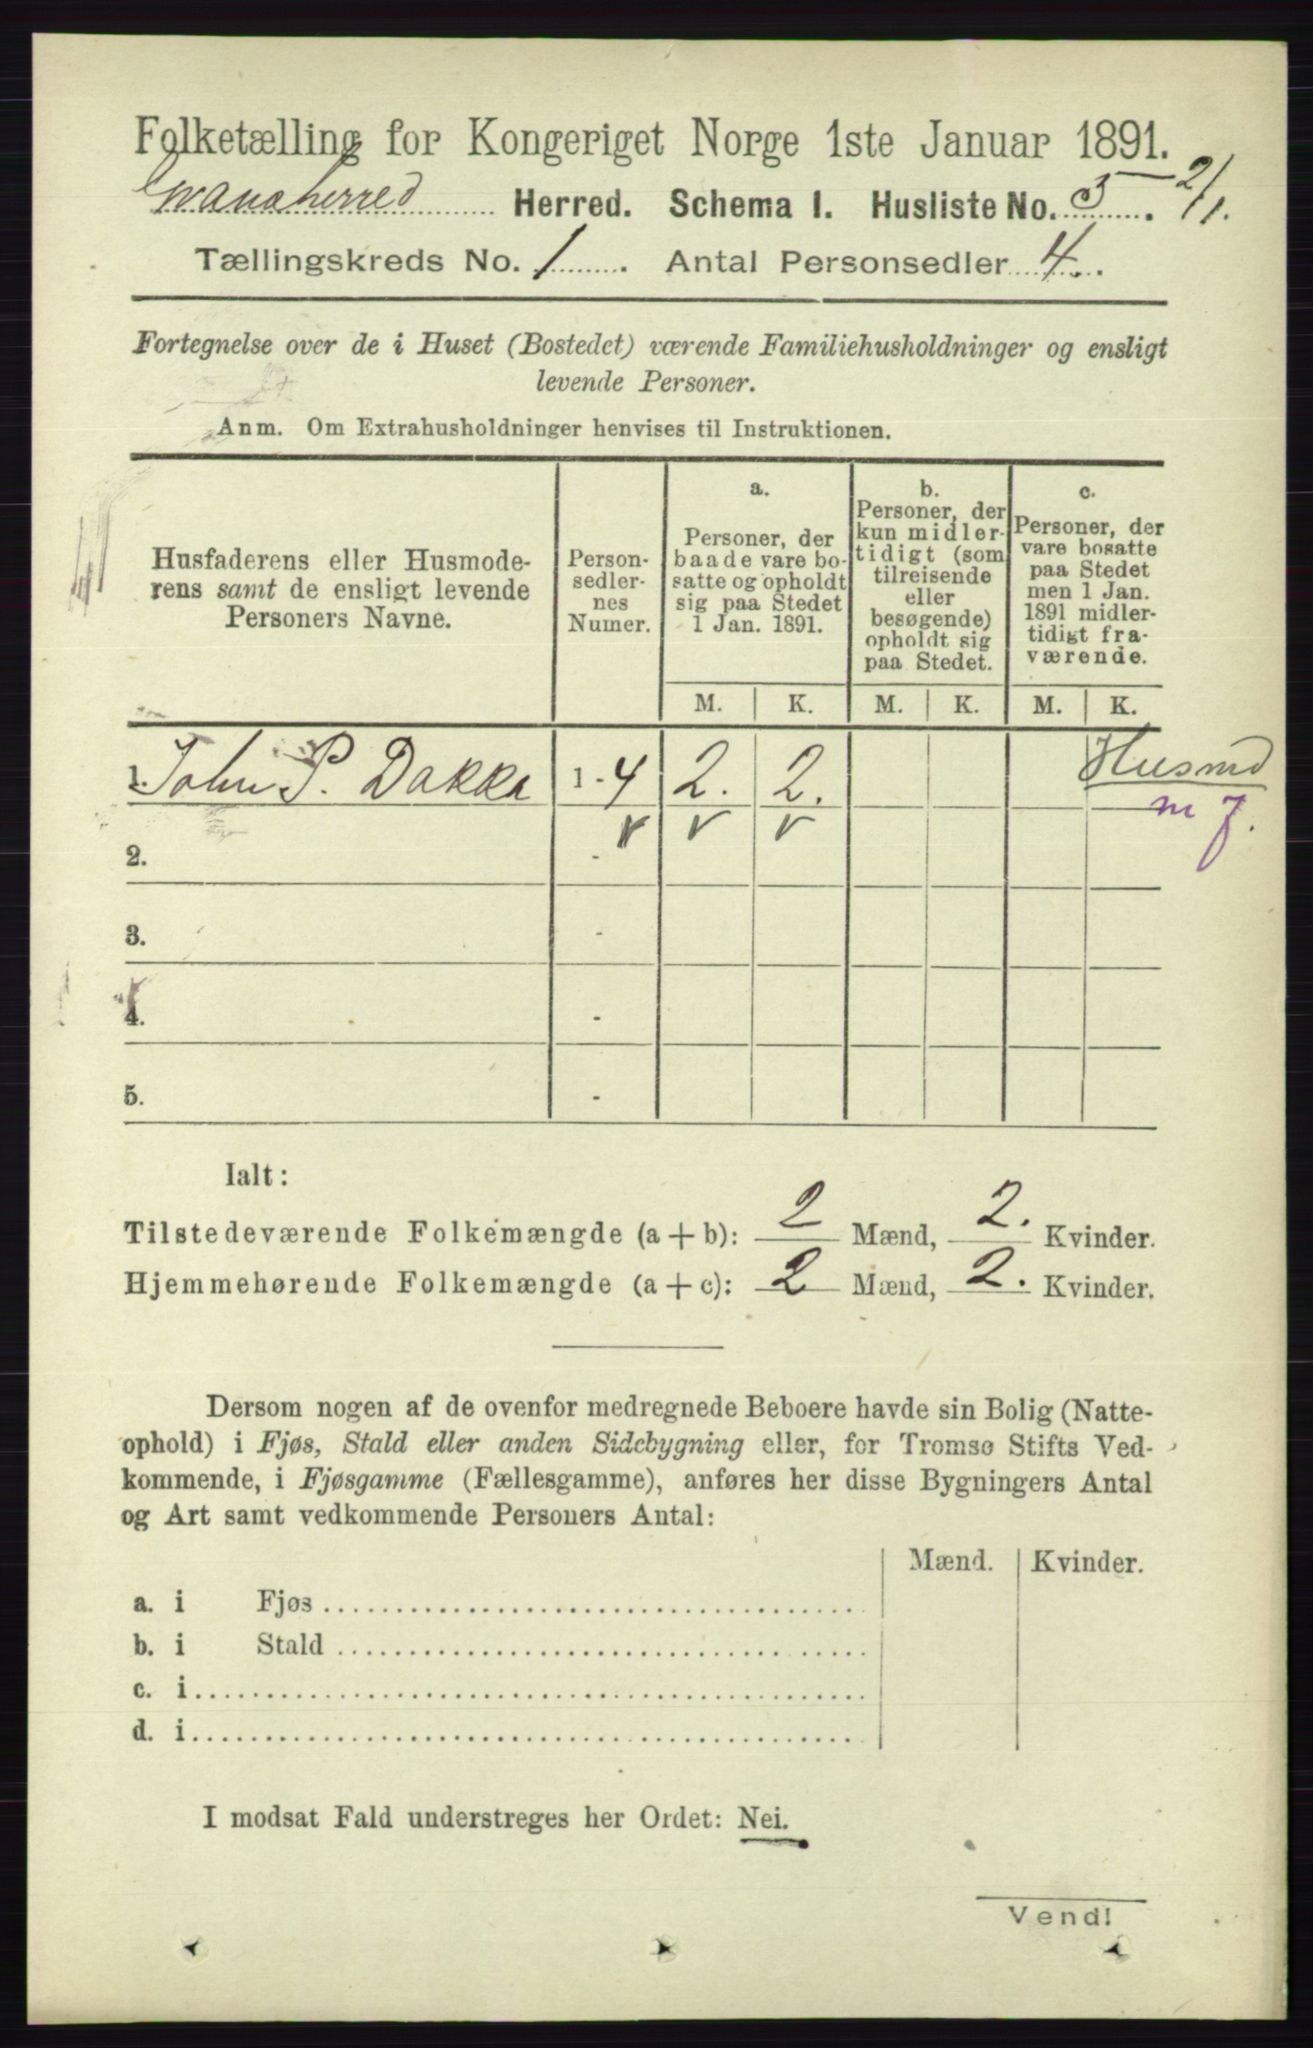 Folketælling for Kongeriget Norge 1ste Januar 1891.
Herred. Schema I. Husliste No. 5. 2/1.
Tællingskreds No. 1. Antal Personsedler 4.
Fortegnelse over de i Huset (Bostedet) værende Familiehusholdninger og ensligt
levende Personer.
Anm. Om Extrahusholdninger henvises til Instruktionen.
Husfaderens eller Husmode-
rens samt de ensligt levende
Personers Navne.
Person-
sedler-
nes
Numer.
a.
Personer, der
baade vare bo-
satte og opholdt
sig paa Stedet
1 Jan. 1891.
b.
Personer, der
kun midler-
tidigt (som
tilreisende
eller
besøgende)
opholdt sig
paa Stedet.
c.
Personer, der
vare bosatte
paa Stedet
men 1 Jan.
1891 midler-
tidigt fra-
værende.
M. K. M. K. M. K.
1. John P. Dakka 1 - 4 2. 2. Husmd
m j.
v v v
2. -
3. -
4. -
5. -
Ialt:
Tilstedeværende Folkemængde (a + b): 2 Mænd, 2. Kvinder.
Hjemmehørende Folkemængde (a + c): 2 Mænd, 2. Kvinder.
Dersom nogen af de ovenfor medregnede Beboere havde sin Bolig (Natte-
ophold) i Fjøs, Stald eller anden Sidebygning eller, for Tromsø Stifts Ved-
kommende, i Fjøsgamme (Fællesgamme), anføres her disse Bygningers Antal
og Art samt vedkommende Personers Antal:
Mænd. Kvinder.
a. i Fjøs
b. i Stald
c. i
d. i
I modsat Fald understreges her Ordet: Nei.
Vend!